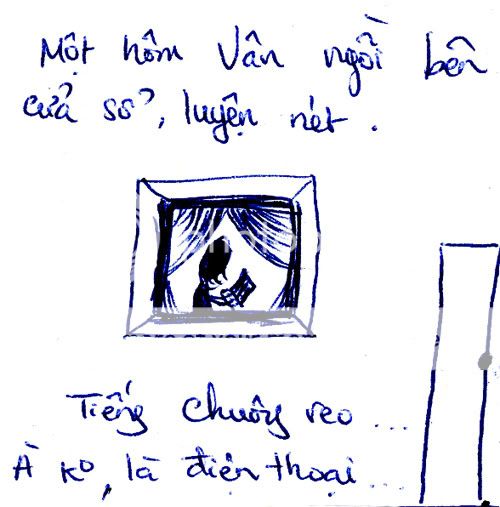 Một hôm Vân ngồi bên
cửa sổ, luyện nét.
Tiếng chuông reo ...
À ko, là điện thoại ...